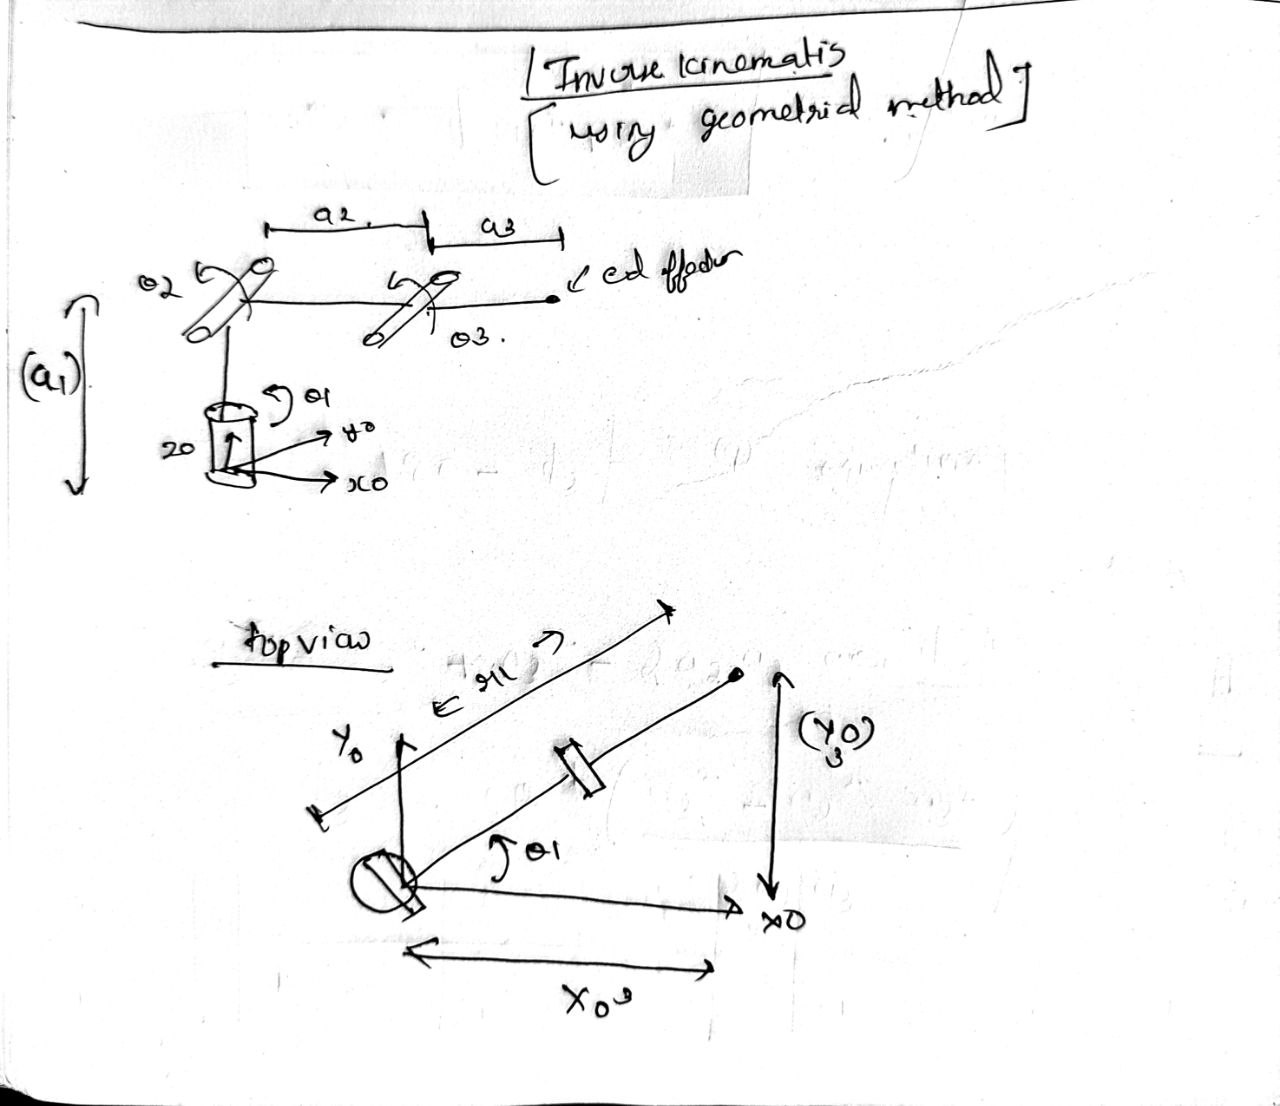 Inverse kinematis
[using geometrical method]
a2
a3
θ2
ed effector
θ3.
(a1)
θ1
z0
y0
x0
top view
r1
Y0
(Y03)
θ1
x0
X03